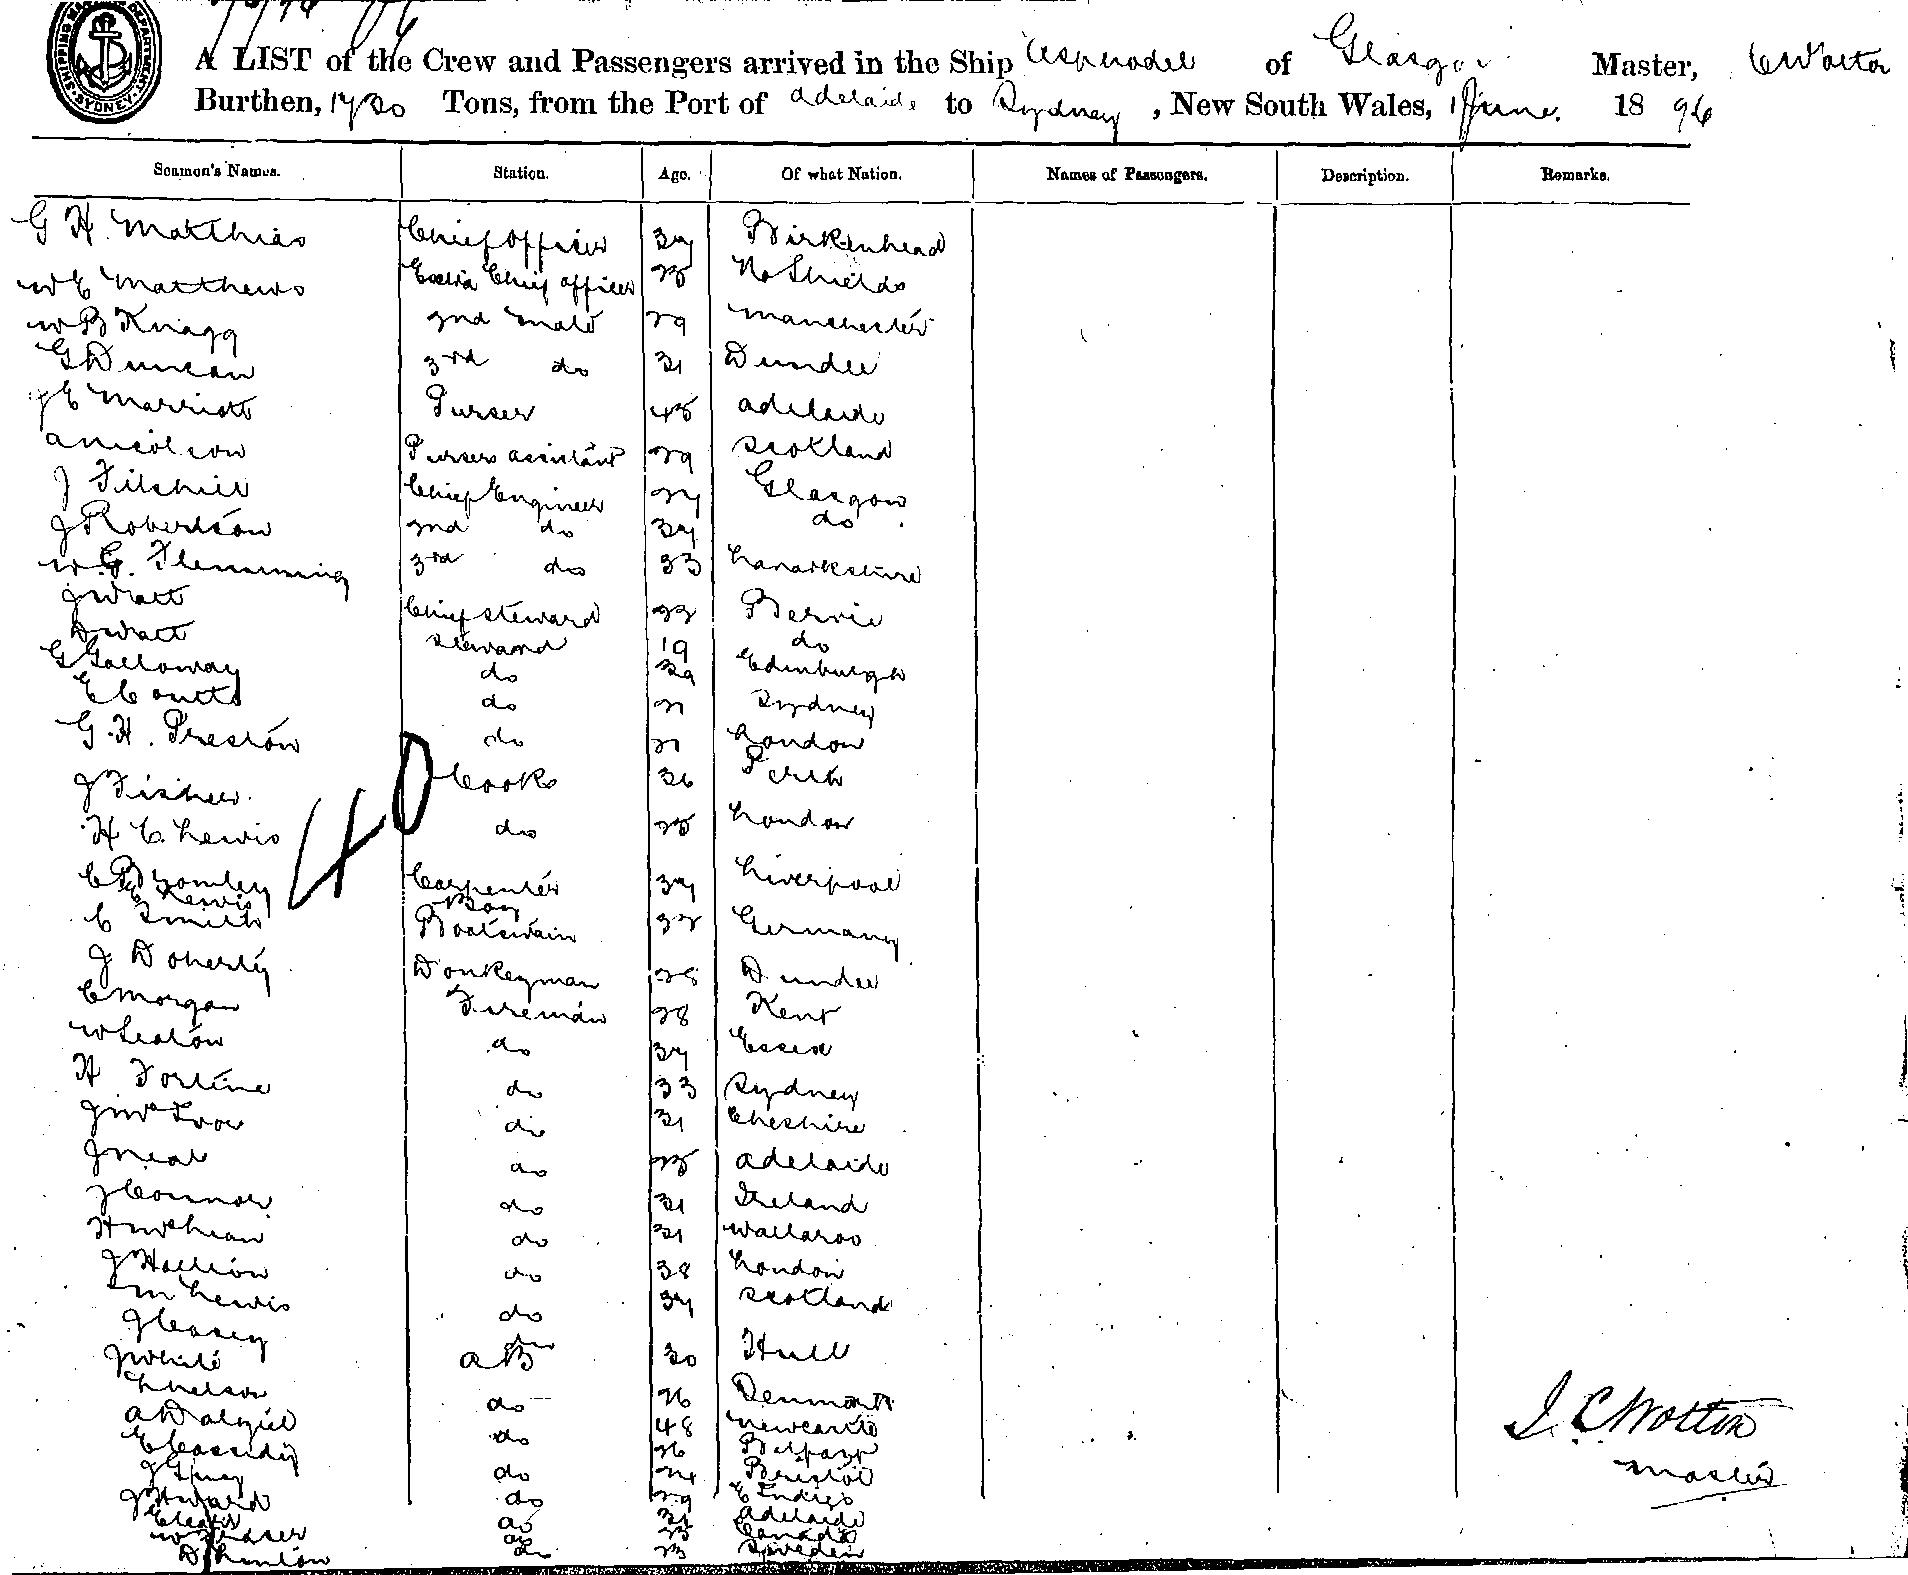 SHIPPING MASTER'S DEPARTMENT SYDNEY
A LIST of the Crew and Passengers arrived in the Ship of Glasgow Master, C Wotton
Burthen, 1720 Tons, from the Port of Adelaide to Sydney, New South Wales, 1 June. 1896
Seamen's Names. Station. Age. Of what Nation. Names of Passengers. Description. Remarks.
G H. Matthias Chief Officer 37 Birkenhead
W C Matthews Extra Chief Officer 25 No Shields
W B Knagg 2nd Mate 29 Manchester
G Duncan 3rd do 31 Dundee
J C Marriott Purser 45 Adelaide
A Nicolson Pursers assistant 29 Scotland
J Filshill Chief Engineer 27 Glasgow
J Robertson 2nd do 37 do
W. G. Flemming 3rd do 33 Lanarkshire
J Watt Chief steward 22 Bervie
D Watt steward 19 do
G Galloway do 39 Edinburgh
E Coutts do 21 Sydney
G. H. Preston do 21 London
J Fisher Cook 36 Perth
H C Lewis do 25 London
40
C Bromley Carpenter 37 Liverpool
Lewis Boy
C Smith Boatswain 32 Germany
J Doherty Donkeyman 28 Dundee
C Morgan Fireman 28 Kent
W Seaton do 37 Essex
H Fortine do 33 Sydney
do 31 Cheshire
J Neal do 25 Adelaide
J Connor do 31 Ireland
H McLean do 31 Wallaroo
J Hallion do 38 London
M Lewis do 37 Scotland
J Casey do
J White AB 30 Hull
Nelson do 26 Denmark
A Dalziel do 48 Newcastle
E Cassidy do 26 Belfast
J do 24 Bristol
J Ward do 29 E Indies
do 31 Adelaide
W Fraser do 23 Canada
D do 23 Sweden
J. C Wotton
Master